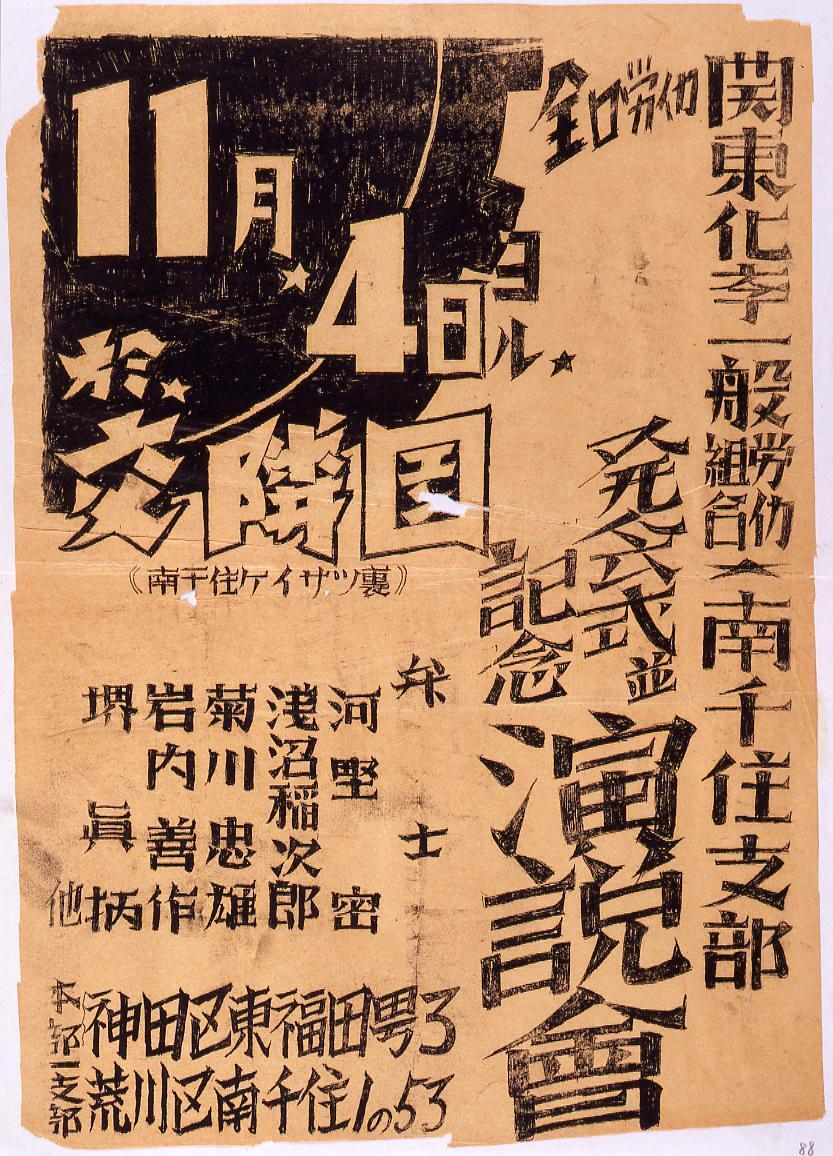 関東化学一般労仂組合
南千住支部
全日労仂
発会式並
記念
演説會
11月4日ヨル
於交隣園
《南千住ケイサツ裏》
弁士
河野密
浅沼稲次郎
菊川忠雄
岩内善作
堺眞柄
他
本部 神田区東福田町3
支部 荒川区南千住1の53
88